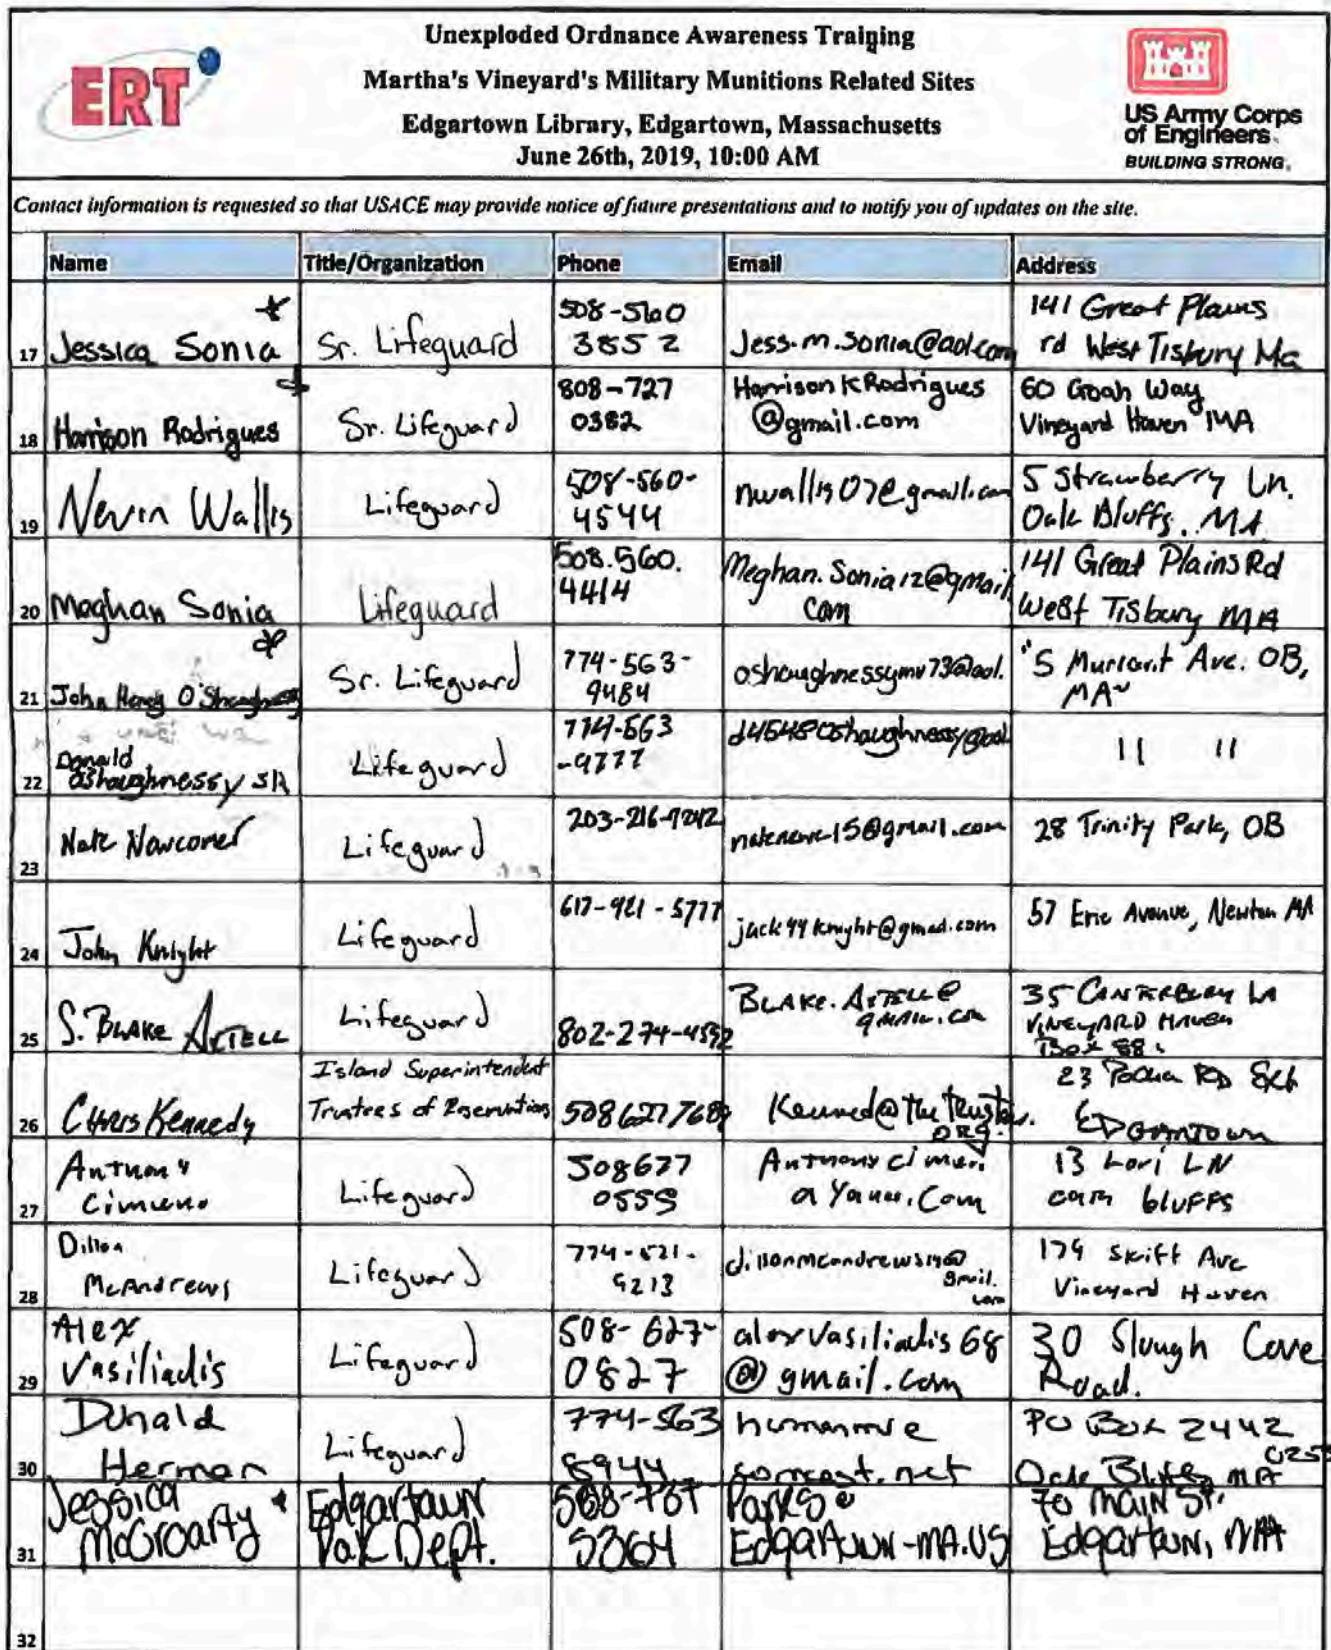 Unexploded Ordnance Awareness Training
ERT
Martha's Vineyard's Military Munitions Related Sites
Edgartown Library, Edgartown, Massachusetts
June 26th, 2019, 10:00 AM
US Army Corps
of Engineers.
BUILDING STRONG.
Contact information is requested so that USACE may provide notice of future presentations and to notify you of updates on the site.
Name Title/Organization Phone Email Address
17 Jessica Sonia Sr. Lifeguard 508-560 3852 Jess.m.sonia@aol.com 141 Great Plains rd West Tisbury Ma
18 Harrison Rodrigues Sr. Lifeguard 808-727 0382 HarrisonKRodrigues @gmail.com 60 Goah Way Vineyard Haven MA
19 Nevin Wallis Lifeguard 508-560- 4544 nwallis07@gmail.com 5 Strawberry Ln. Oak Bluffs, MA
20 Meghan Sonia Lifeguard 508.560. 4414 Meghan.Sonia12@gmail. com 141 Great Plains Rd West Tisbury MA
21 John Henry Sr. Lifeguard 774-563- 9484 oshaughnessymv73@aol. Ave. OB, MA
22 Donald Oshaughnessy Lifeguard 774-563 -9777 11 11
23 Nate Newcomer Lifeguard 203-216-9242 28 Trinity Park, OB
24 John Knight Lifeguard 617-921-5777 jack44knight@gmail.com 57 Erie Avenue, Newton MA
25 S. BLAKE AXTELL Lifeguard 802-274-4592 BLAKE.AXTELL@ gmail.com 35 CANTERBURY LN VINEYARD HAVEN Box 88
26 Chris Kennedy Island Superintendent Trustees of Reservations 23 Pocha RD EDGARTOWN
27 Anthony Lifeguard 508627 0559 13 Lori LN oak bluffs
28 Dillon McAndrews Lifeguard 774-521- 9213 179 Skiff Ave Vineyard Haven
29 Alex Vasiliadis Lifeguard 508-627- 0827 alexvasiliadis68 @gmail.com 30 Slough Cove Road.
30 Donald Herman Lifeguard 774-563 5944 comcast.net PO Box 2442 Oak Bluffs, MA
31 Jessica McGroarty Edgartown Park Dept. 5364 Parks@ Edgartown-MA.US 70 Main St. Edgartown, MA
32